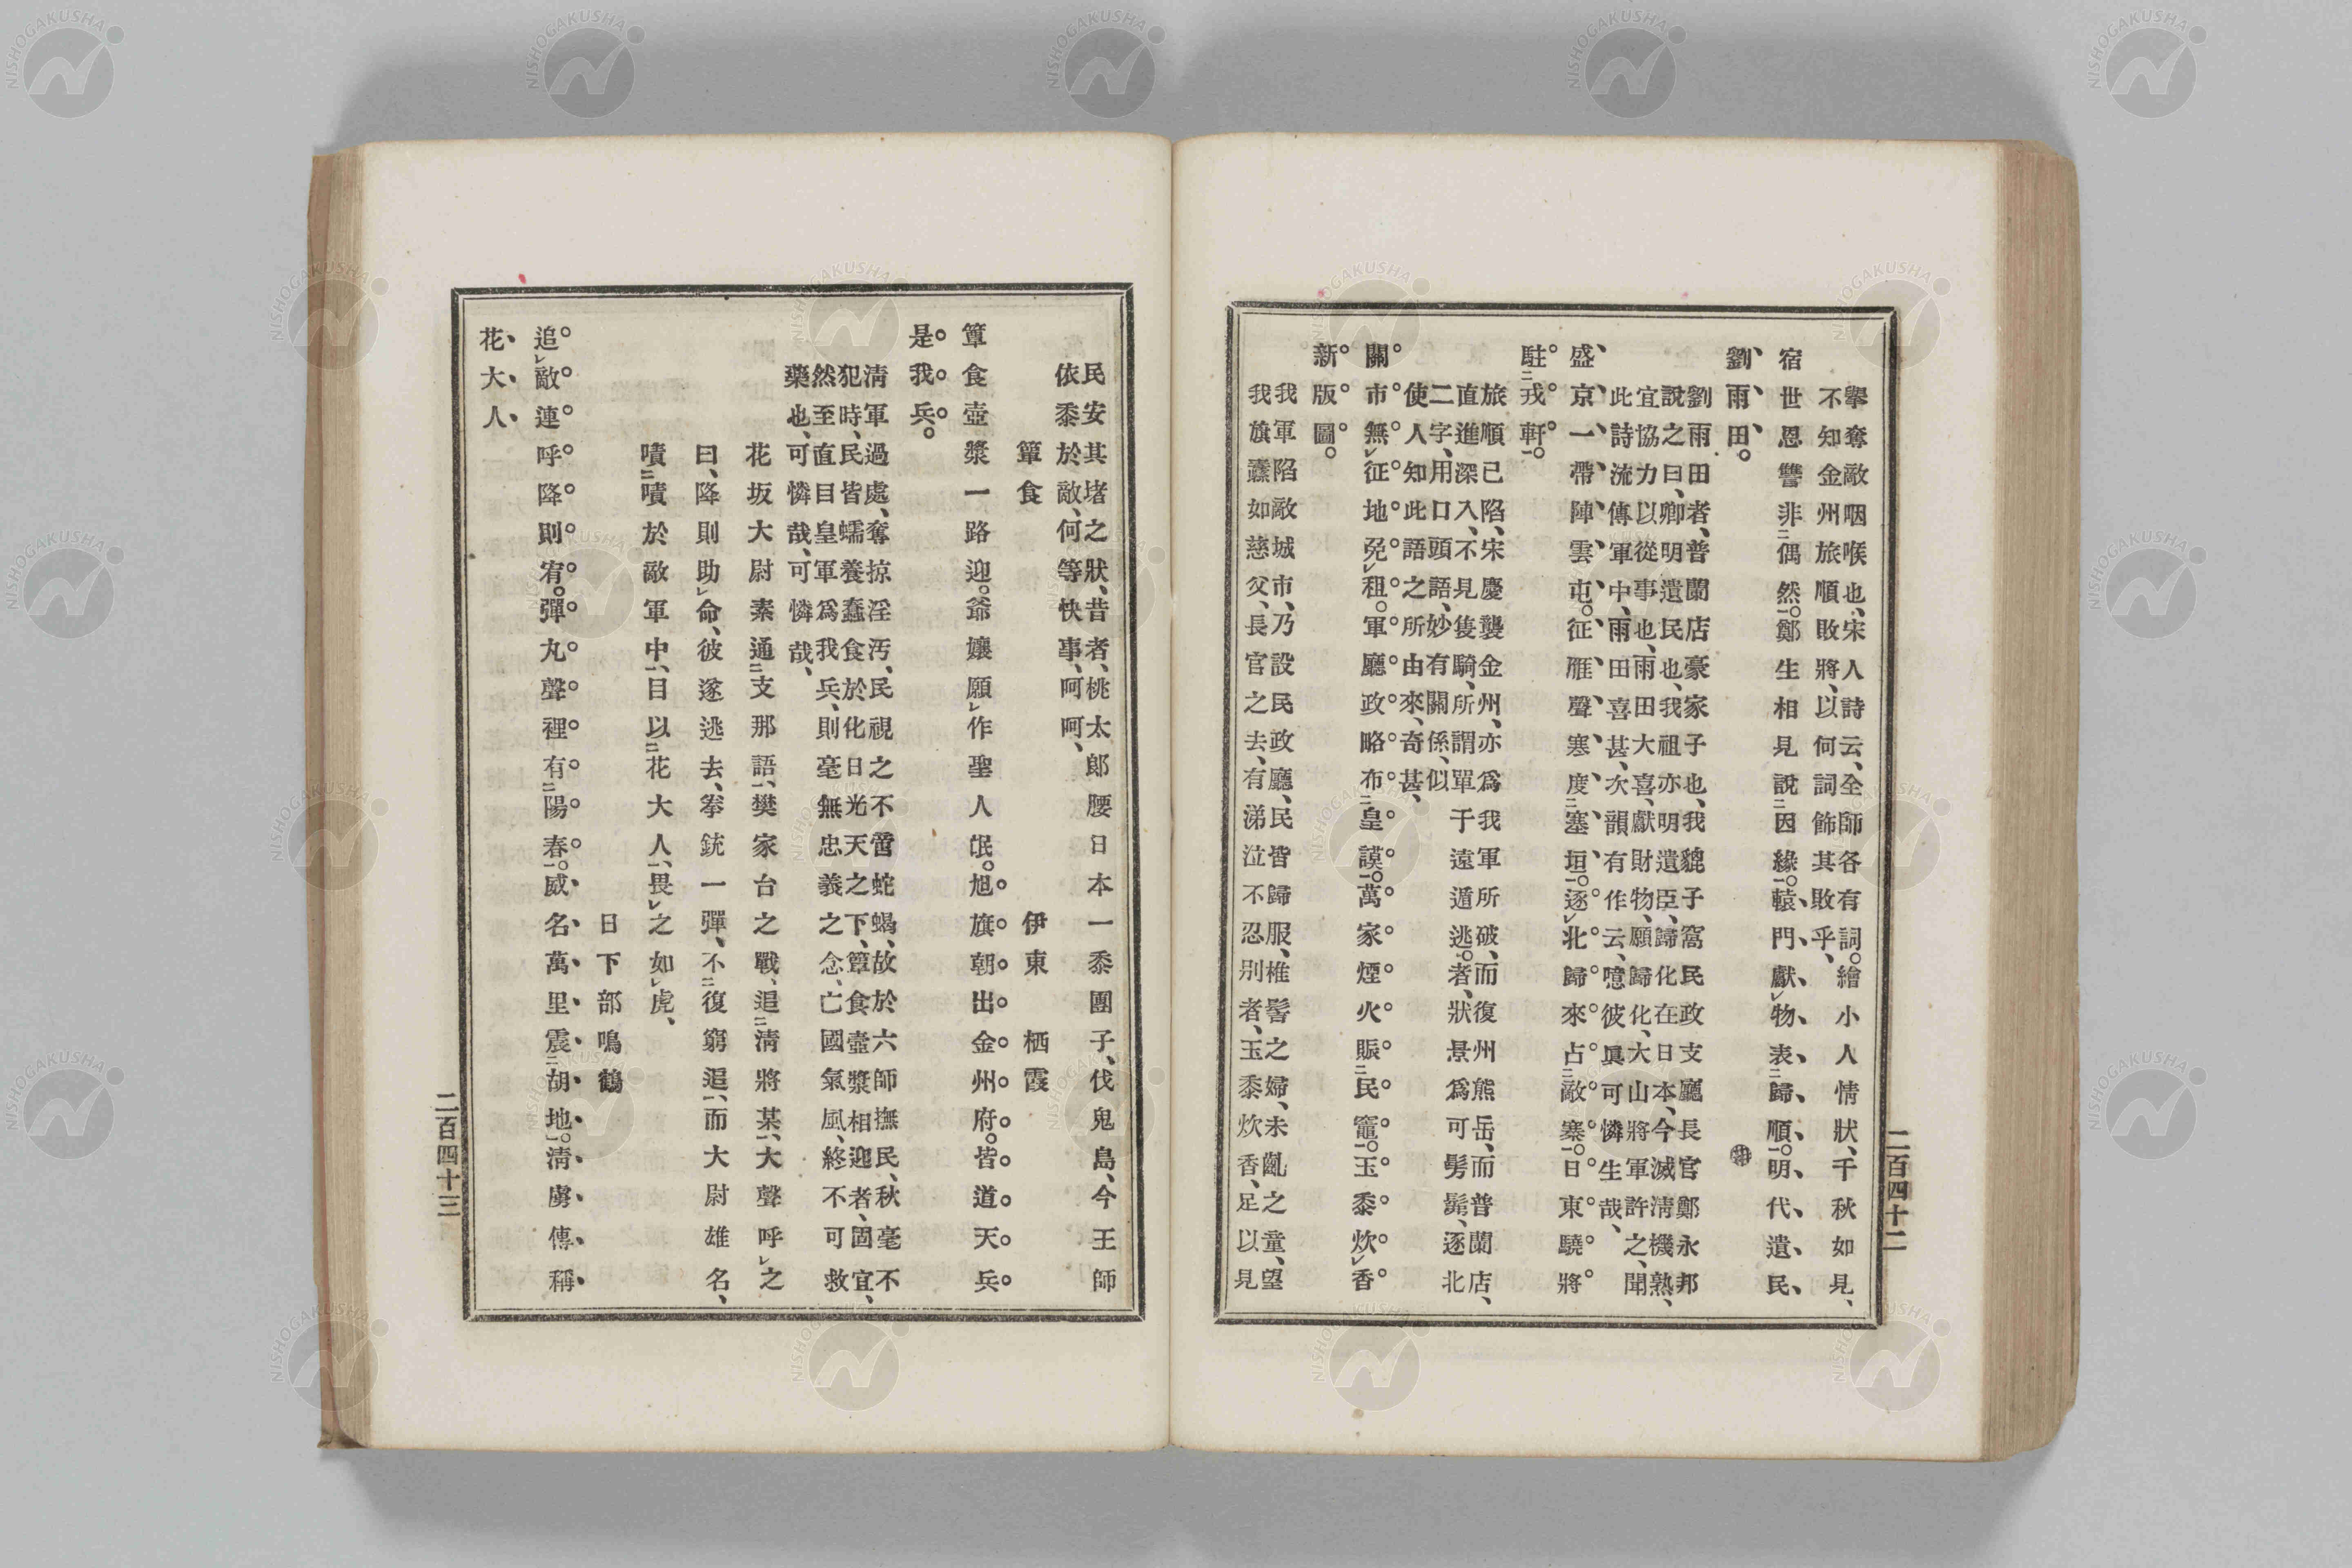 擧奪敵咽喉也、宋人詩云、全師各有詞。繪小人情狀、千秋如見、
不知金州旅順敗將、以何詞飾其敗乎、
宿世恩讐非二偶然。一鄭生相見說二因緣。一轅門獻レ物表二歸順。一明代遺民
劉雨田。
劉雨田者、普蘭店豪家子也、我貔子窩民政支廳長官鄭永邦
說之曰、卿明遺民也、我祖亦明遺臣、歸化在日本、今滅淸機熟、
宜協力以從事也、雨田大喜、獻財物、願歸化、大山將軍許之、聞
此詩流傳軍中、雨田喜甚、次韻有作云、噫彼眞可憐生哉、
盛京一帶陣雲屯。征雁聲寒度二塞垣。一逐レ北歸來占二敵寨。一日東驍將
駐二戎軒。一
旅順已陷、宋慶襲金州、亦爲我軍所破、而復州熊岳、而普蘭店、
直進深入、不見隻騎、所謂單于遠遁逃。者、狀景爲可髣髴、逐北
二字、用口頭語、妙有關係、似
使人知此語之所由來、奇甚、
關市無レ征地免レ租。軍廳政略布二皇謨。一萬家煙火賑二民竈。一玉黍炊レ香
新版圖。
我軍陷敵城市、乃設民政廳、民皆歸服、椎髻之婦、未齔之童、望
我旗纛如慈父、長官之去、有涕泣不忍別者、玉黍炊香、足以見
二百四十二
民安其堵之狀、昔者、桃太郎腰日本一黍團子、伐鬼島、今王師
依黍於敵、何等快事、呵呵、
簞食 伊東栖霞
簞食壺漿一路迎。爺孃願レ作聖人氓。旭旗朝出金州府。皆道天兵
是我兵。
淸軍過處、奪掠淫汚、民視之不啻蛇蝎、故於六師撫民、秋毫不
犯時、民皆蠕養蠢食於化日光天之下、簞食壺漿相迎者、固宜、
然至直目皇軍爲我兵、則毫無忠義之念、亡國氣風、終不可救
藥也、可憐哉、可憐哉、
花坂大尉素通二支那語、一樊家台之戰、追二淸將某、一大聲呼レ之
曰、降則助レ命、彼遂逃去、拳銃一彈、不二復窮追、一而大尉雄名、
嘖二嘖於敵軍中、一目以二花大人、一畏レ之如レ虎、
日下部鳴鶴
追レ敵連呼降則宥。彈丸聲裡有二陽春。一威名萬里震二胡地。一淸虜傳稱
花大人
二百四十三